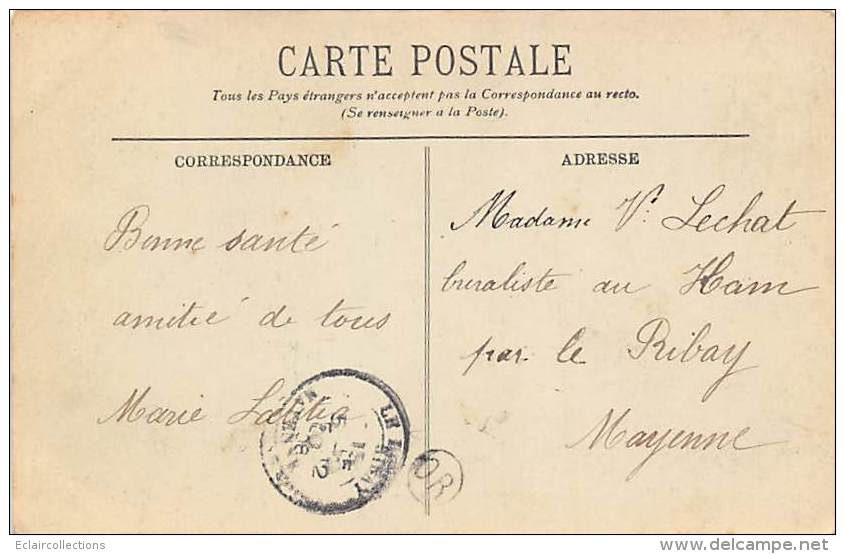 CARTE POSTALE
Tous les Pays étrangers n'acceptent pas la Correspondance au recto.
(Se renseigner à la Poste).
CORRESPONDANCE
ADRESSE
Bonne santé
amitié de tous
Marie Laetitia
Madame Vᵉ Lechat
buraliste au Ham
par le Ribay
Mayenne
LE RIBAY
MAYENNE
OR
Eclaircollections
www.delcampe.net